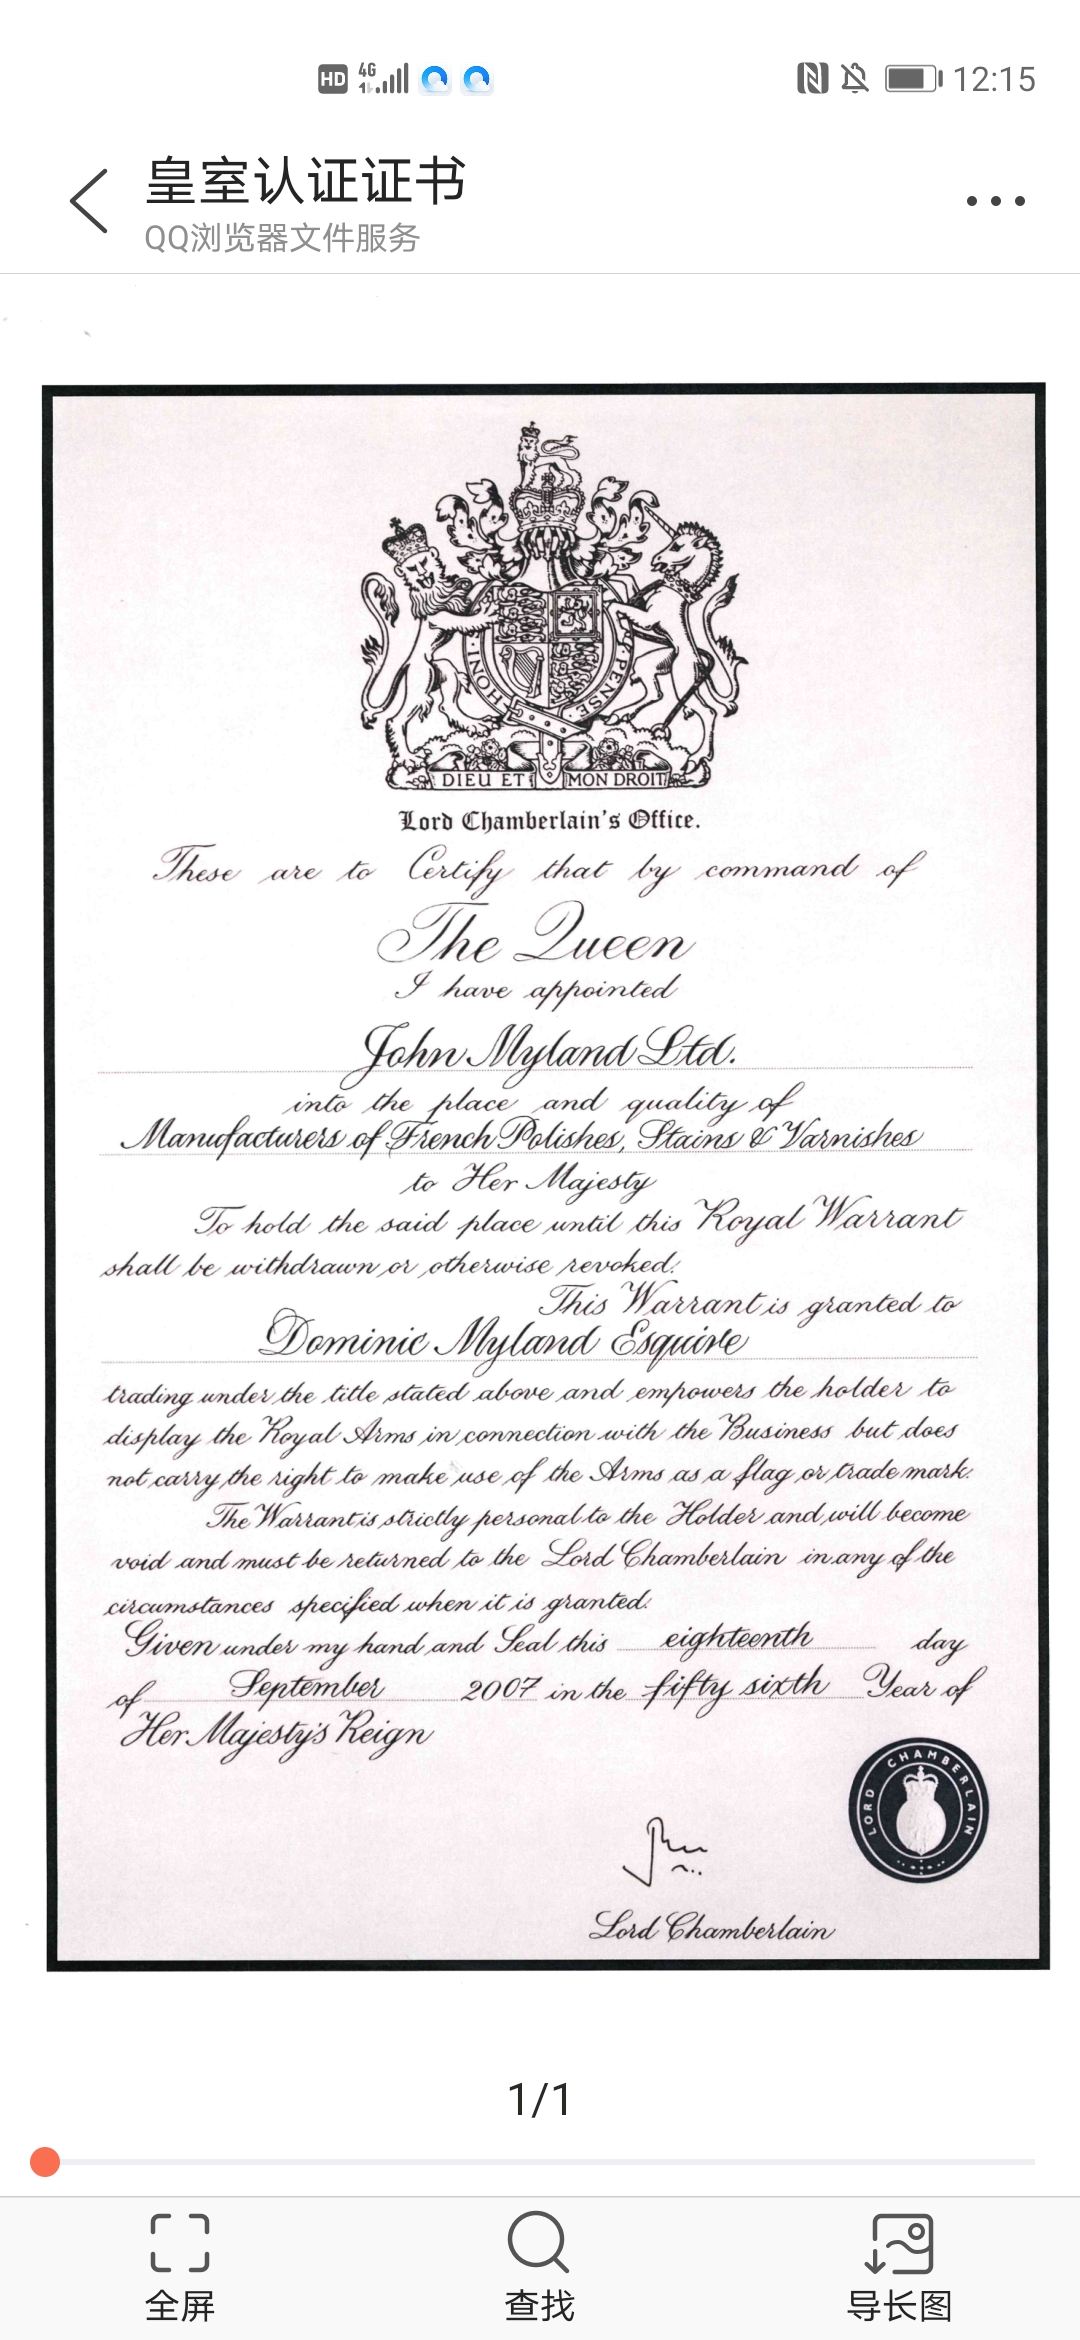 HD 4G 12:15
皇室认证证书
QQ浏览器文件服务
HON PENSE
DIEU ET MON DROIT
Lord Chamberlain's Office.
These are to Certify that by command of
The Queen
I have appointed
John Myland Ltd.
into the place and quality of
Manufacturers of French Polishes, Stains & Varnishes
to Her Majesty
To hold the said place until this Royal Warrant
shall be withdrawn or otherwise revoked.
This Warrant is granted to
Dominic Myland Esquire
trading under the title stated above and empowers the holder to
display the Royal Arms in connection with the Business but does
not carry the right to make use of the Arms as a flag or trade mark.
The Warrant is strictly personal to the Holder and will become
void and must be returned to the Lord Chamberlain in any of the
circumstances specified when it is granted.
Given under my hand and Seal this eighteenth day
of September 2007 in the fifty sixth Year of
Her Majesty's Reign
LORD CHAMBERLAIN
Lord Chamberlain
1/1
全屏 查找 导长图